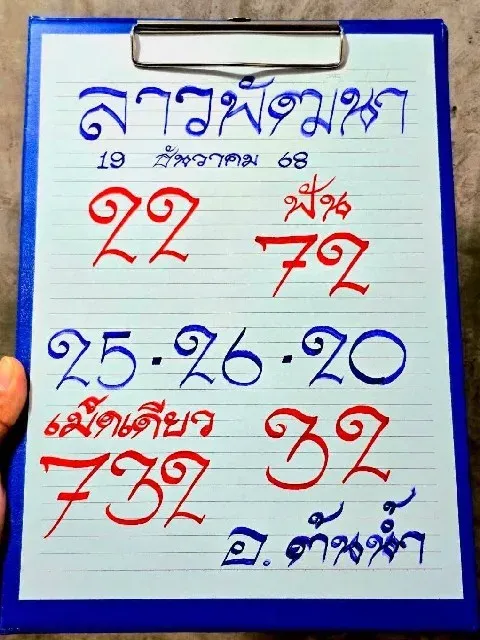 ลาวพัฒนา
19 ธันวาคม 68
22 ฟัน
72
25 - 26 - 20
เม็ดเดียว 32
732
อ. ต้นน้ำ